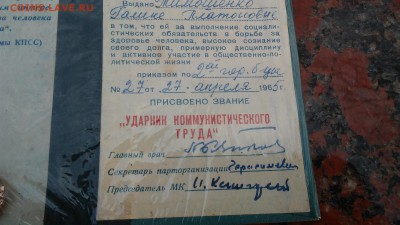 COINS.LAVE.RU
человека
а".
мы КПСС)
Выдано Тимошенко
Галине Платоновне
в том, что ей за выполнение социалистических
обязательств в борьбе за
здоровье человека, высокое сознание
своего долга, примерную дисциплину
и активное участие в общественно-
политической жизни
приказом по 2ой гор. б-цы
№ 27 от 27 апреля 1963 г.
ПРИСВОЕНО ЗВАНИЕ
„УДАРНИК КОММУНИСТИЧЕСКОГО
ТРУДА"
Главный врач
Секретарь парторганизации
Председатель МК